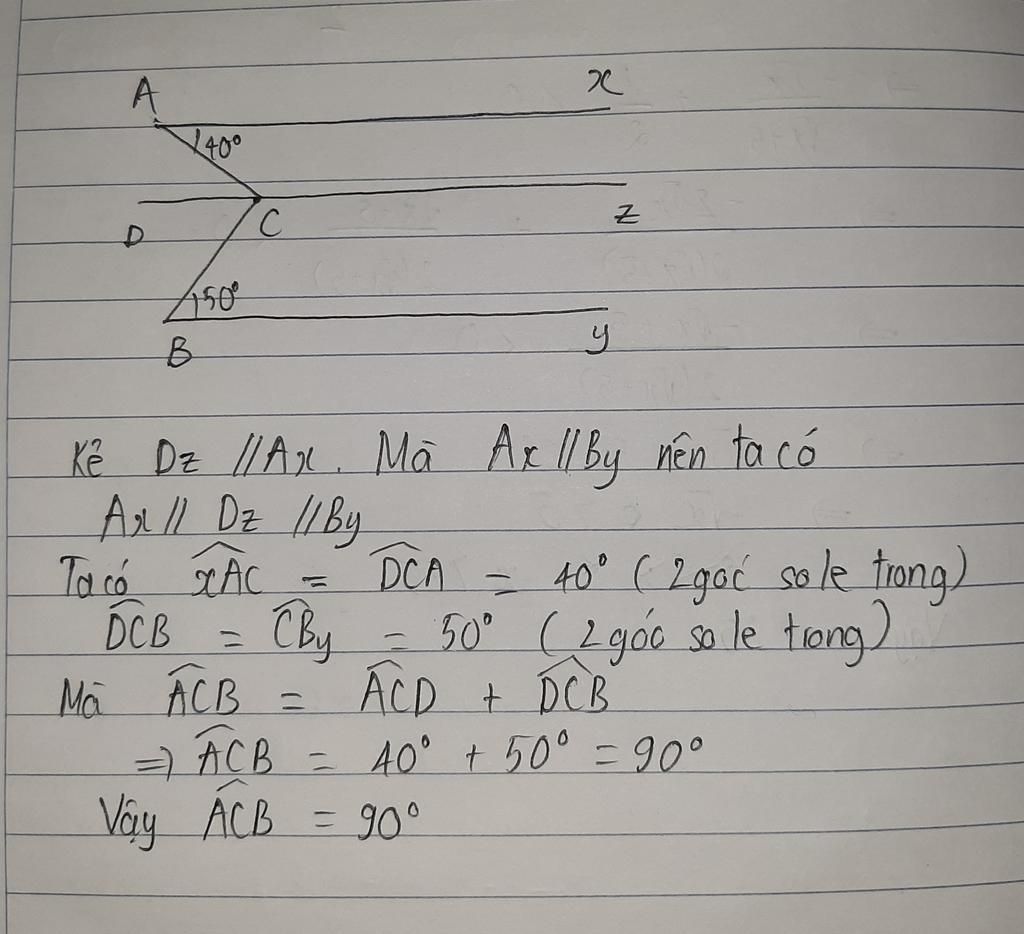 A x
40°
D C z
50°
B y
Kẻ Dz //Ax. Mà Ax //By nên ta có
Ax // Dz //By
Ta có xAC = DCA = 40° (2 goć so le trong)
DCB = CBy = 50° (2 góc so le trong)
Mà ACB = ACD + DCB
=> ACB = 40° + 50° = 90°
Vậy ACB = 90°